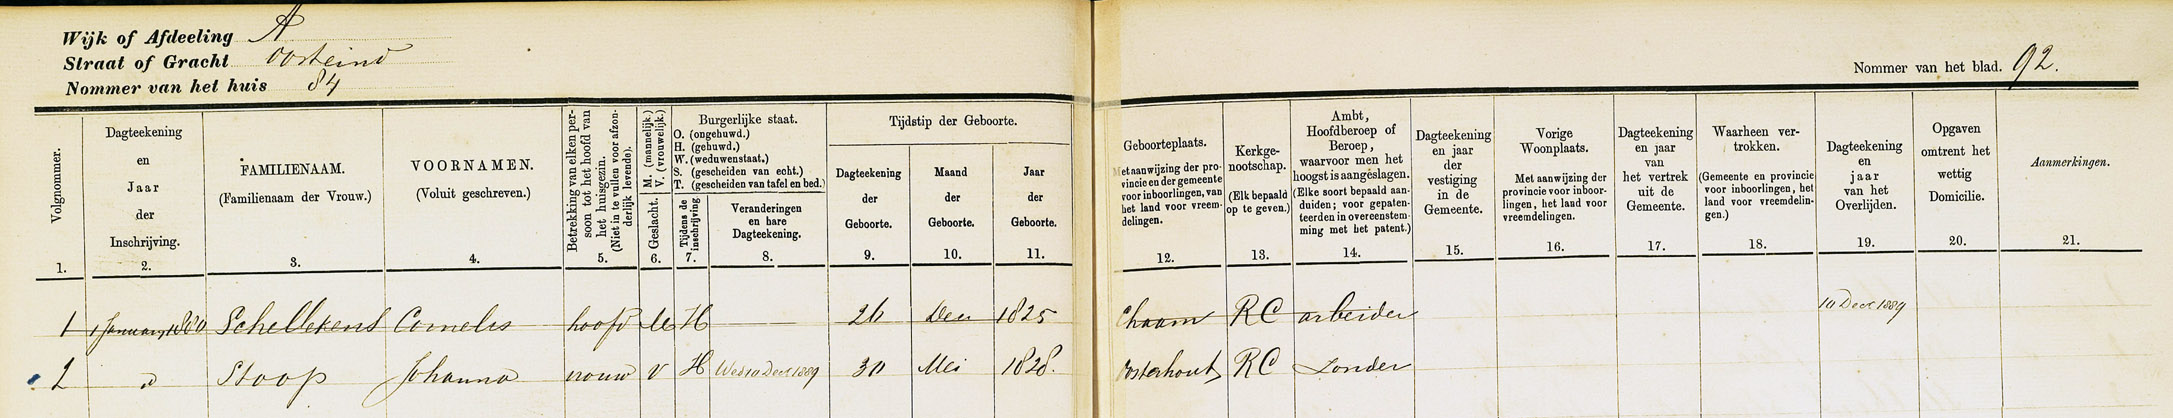 Wijk of Afdeeling A
Straat of Gracht Oosteind
Nommer van het huis 84
Nommer van het blad. 92.
Volgnommer.
1.
Dagteekening
en
Jaar
der
Inschrijving.
2.
FAMILIENAAM.
(Familienaam der Vrouw.)
3.
VOORNAMEN.
(Voluit geschreven.)
4.
Betrekking van elken per-
soon tot het hoofd van
het huisgezin.
(Niet in te vullen voor afzon-
derlijk levende).
5.
Geslacht. M. (mannelijk.)
V. (vrouwelijk.)
6.
Burgerlijke staat.
O. (ongehuwd.)
H. (gehuwd.)
W. (weduwenstaat.)
S. (gescheiden van echt.)
T. (gescheiden van tafel en bed.)
Tijdens de
inschrijving
7.
Veranderingen
en hare
Dagteekening.
8.
Tijdstip der Geboorte.
Dagteekening
der
Geboorte.
9.
Maand
der
Geboorte.
10.
Jaar
der
Geboorte.
11.
Geboorteplaats.
Met aanwijzing der pro-
vincie en der gemeente
voor inboorlingen, van
het land voor vreem-
delingen.
12.
Kerkge-
nootschap.
(Elk bepaald
op te geven.)
13.
Ambt,
Hoofdberoep of
Beroep,
waarvoor men het
hoogst is aangeslagen.
(Elke soort bepaald aan-
duiden; voor gepaten-
teerden in overeenstem-
ming met het patent.)
14.
Dagteekening
en jaar
der
vestiging
in de
Gemeente.
15.
Vorige
Woonplaats.
Met aanwijzing der
provincie voor inboor-
lingen, het land voor
vreemdelingen.
16.
Dagteekening
en jaar
van
het vertrek
uit de
Gemeente.
17.
Waarheen ver-
trokken.
(Gemeente en provincie
voor inboorlingen, het
land voor vreemdelin-
gen.)
18.
Dagteekening
en
jaar
van het
Overlijden.
19.
Opgaven
omtrent het
wettig
Domicilie.
20.
Aanmerkingen.
21.
1 1 January 1880 Schellekens Cornelis hoofd M H 26 Dec 1825 Chaam RC arbeider 10 Dec 1889
2 " Stoop Johanna vrouw V H Wed 10 Dec 1889 30 Mei 1828. Oosterhout RC Zonder